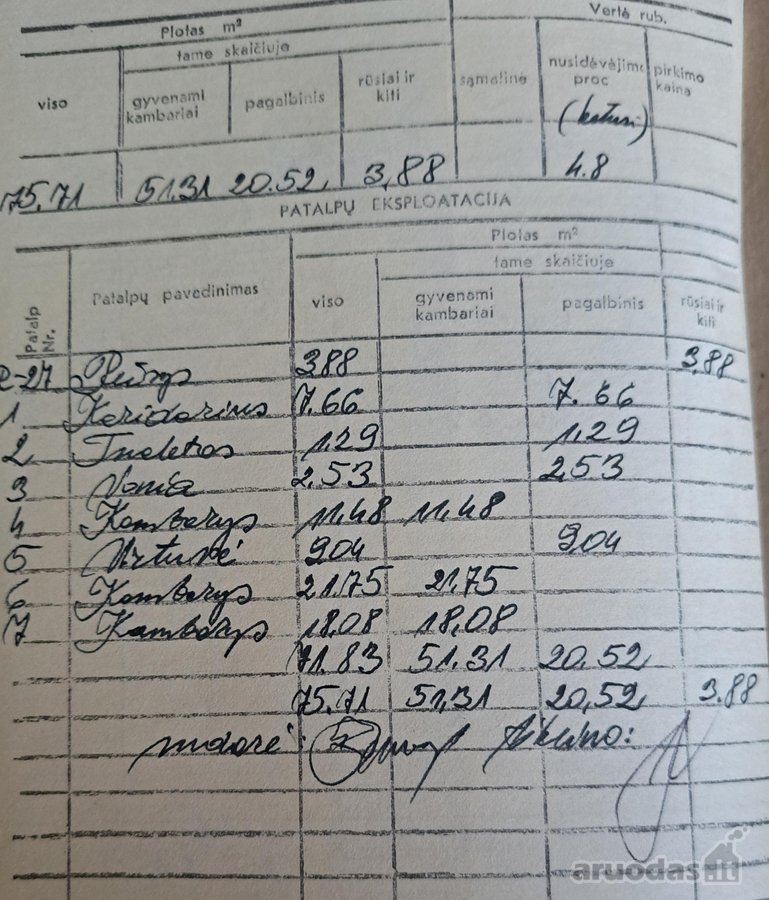 Plotas m² Vertė rub.
viso tame skaičiuje sąmatinė nusidėvėjimo proc pirkimo kaina
gyvenami kambariai pagalbinis rūsiai ir kiti
75.71 51.31 20.52 3,88 4.8
PATALPŲ EKSPLOATACIJA
Patalp Nr. Patalpų pavadinimas Plotas m²
viso tame skaičiuje rūsiai ir kiti
gyvenami kambariai pagalbinis
R-27 Rūsys 3.88 3.88
1 Koridorius 7.66 7.66
2 Tualetas 1.29 1.29
3 Vonia 2.53 2,53
4 Kambarys 11.48 11.48
5 Virtuvė 9.04 9.04
6 Kambarys 21.75 21.75
7 Kambarys 18.08 18.08
71.83 51.31 20.52
75.71 51.31 20,52 3.88
aruodas.lt